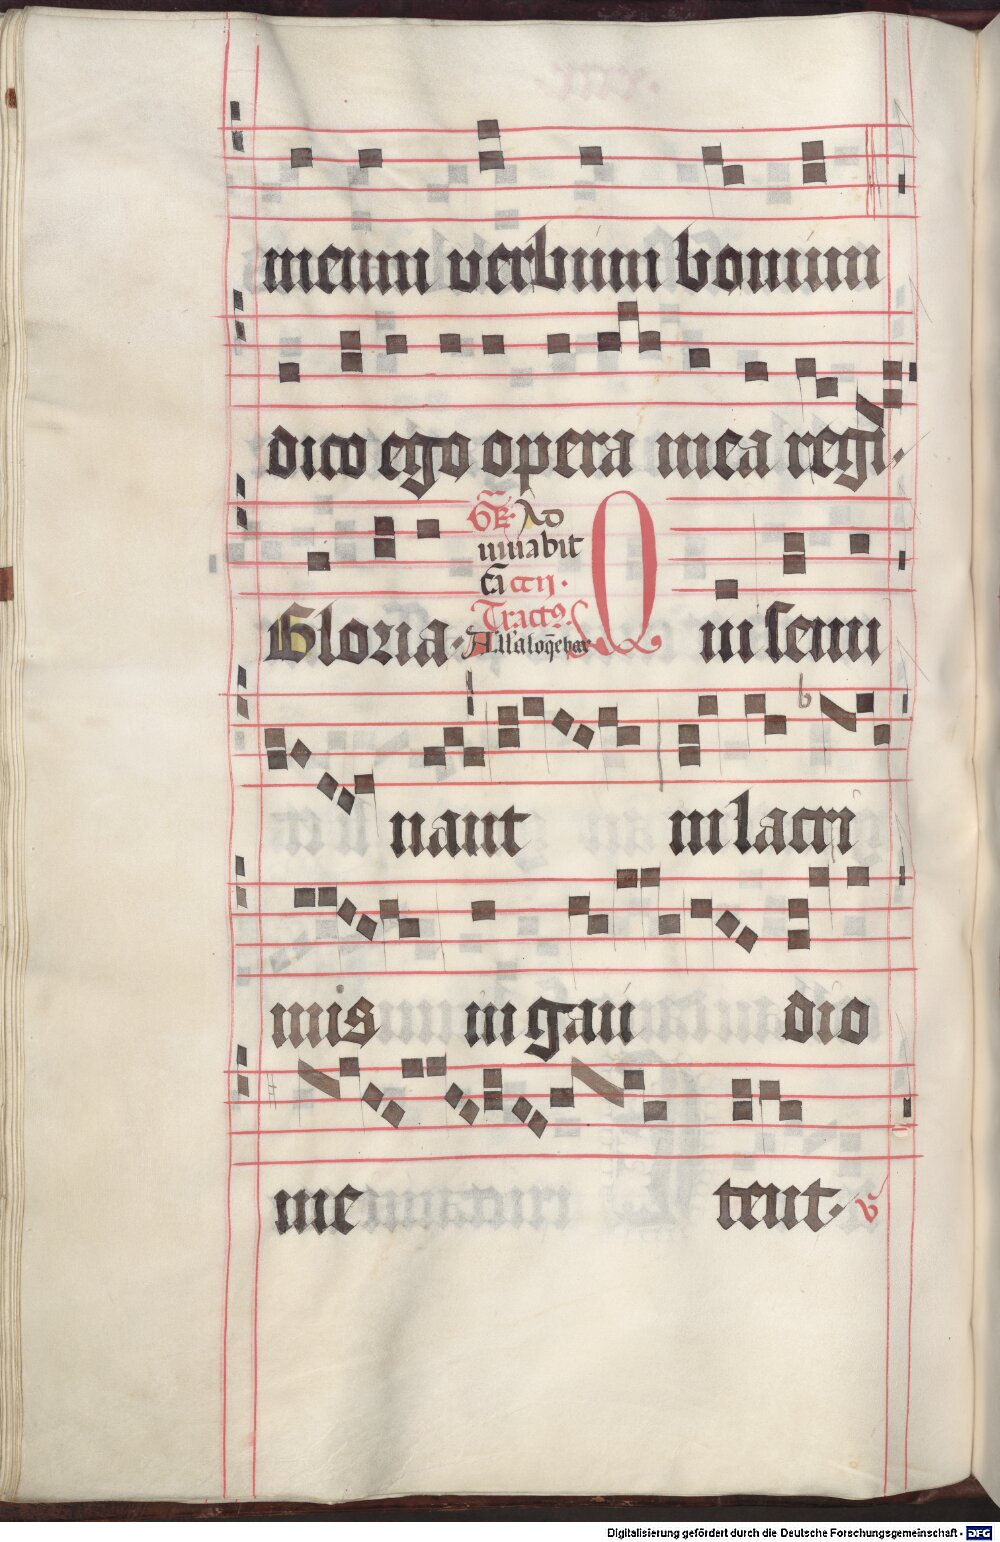 meum verbum bonum
dico ego opera mea regi.
Gloria. GR. Ad
iuuabit
Ca ccij.
Tractus.
Qui semi
nant in lacri
mis in gau dio
me tent. V
Digitalisierung gefördert durch die Deutsche Forschungsgemeinschaft - DFG